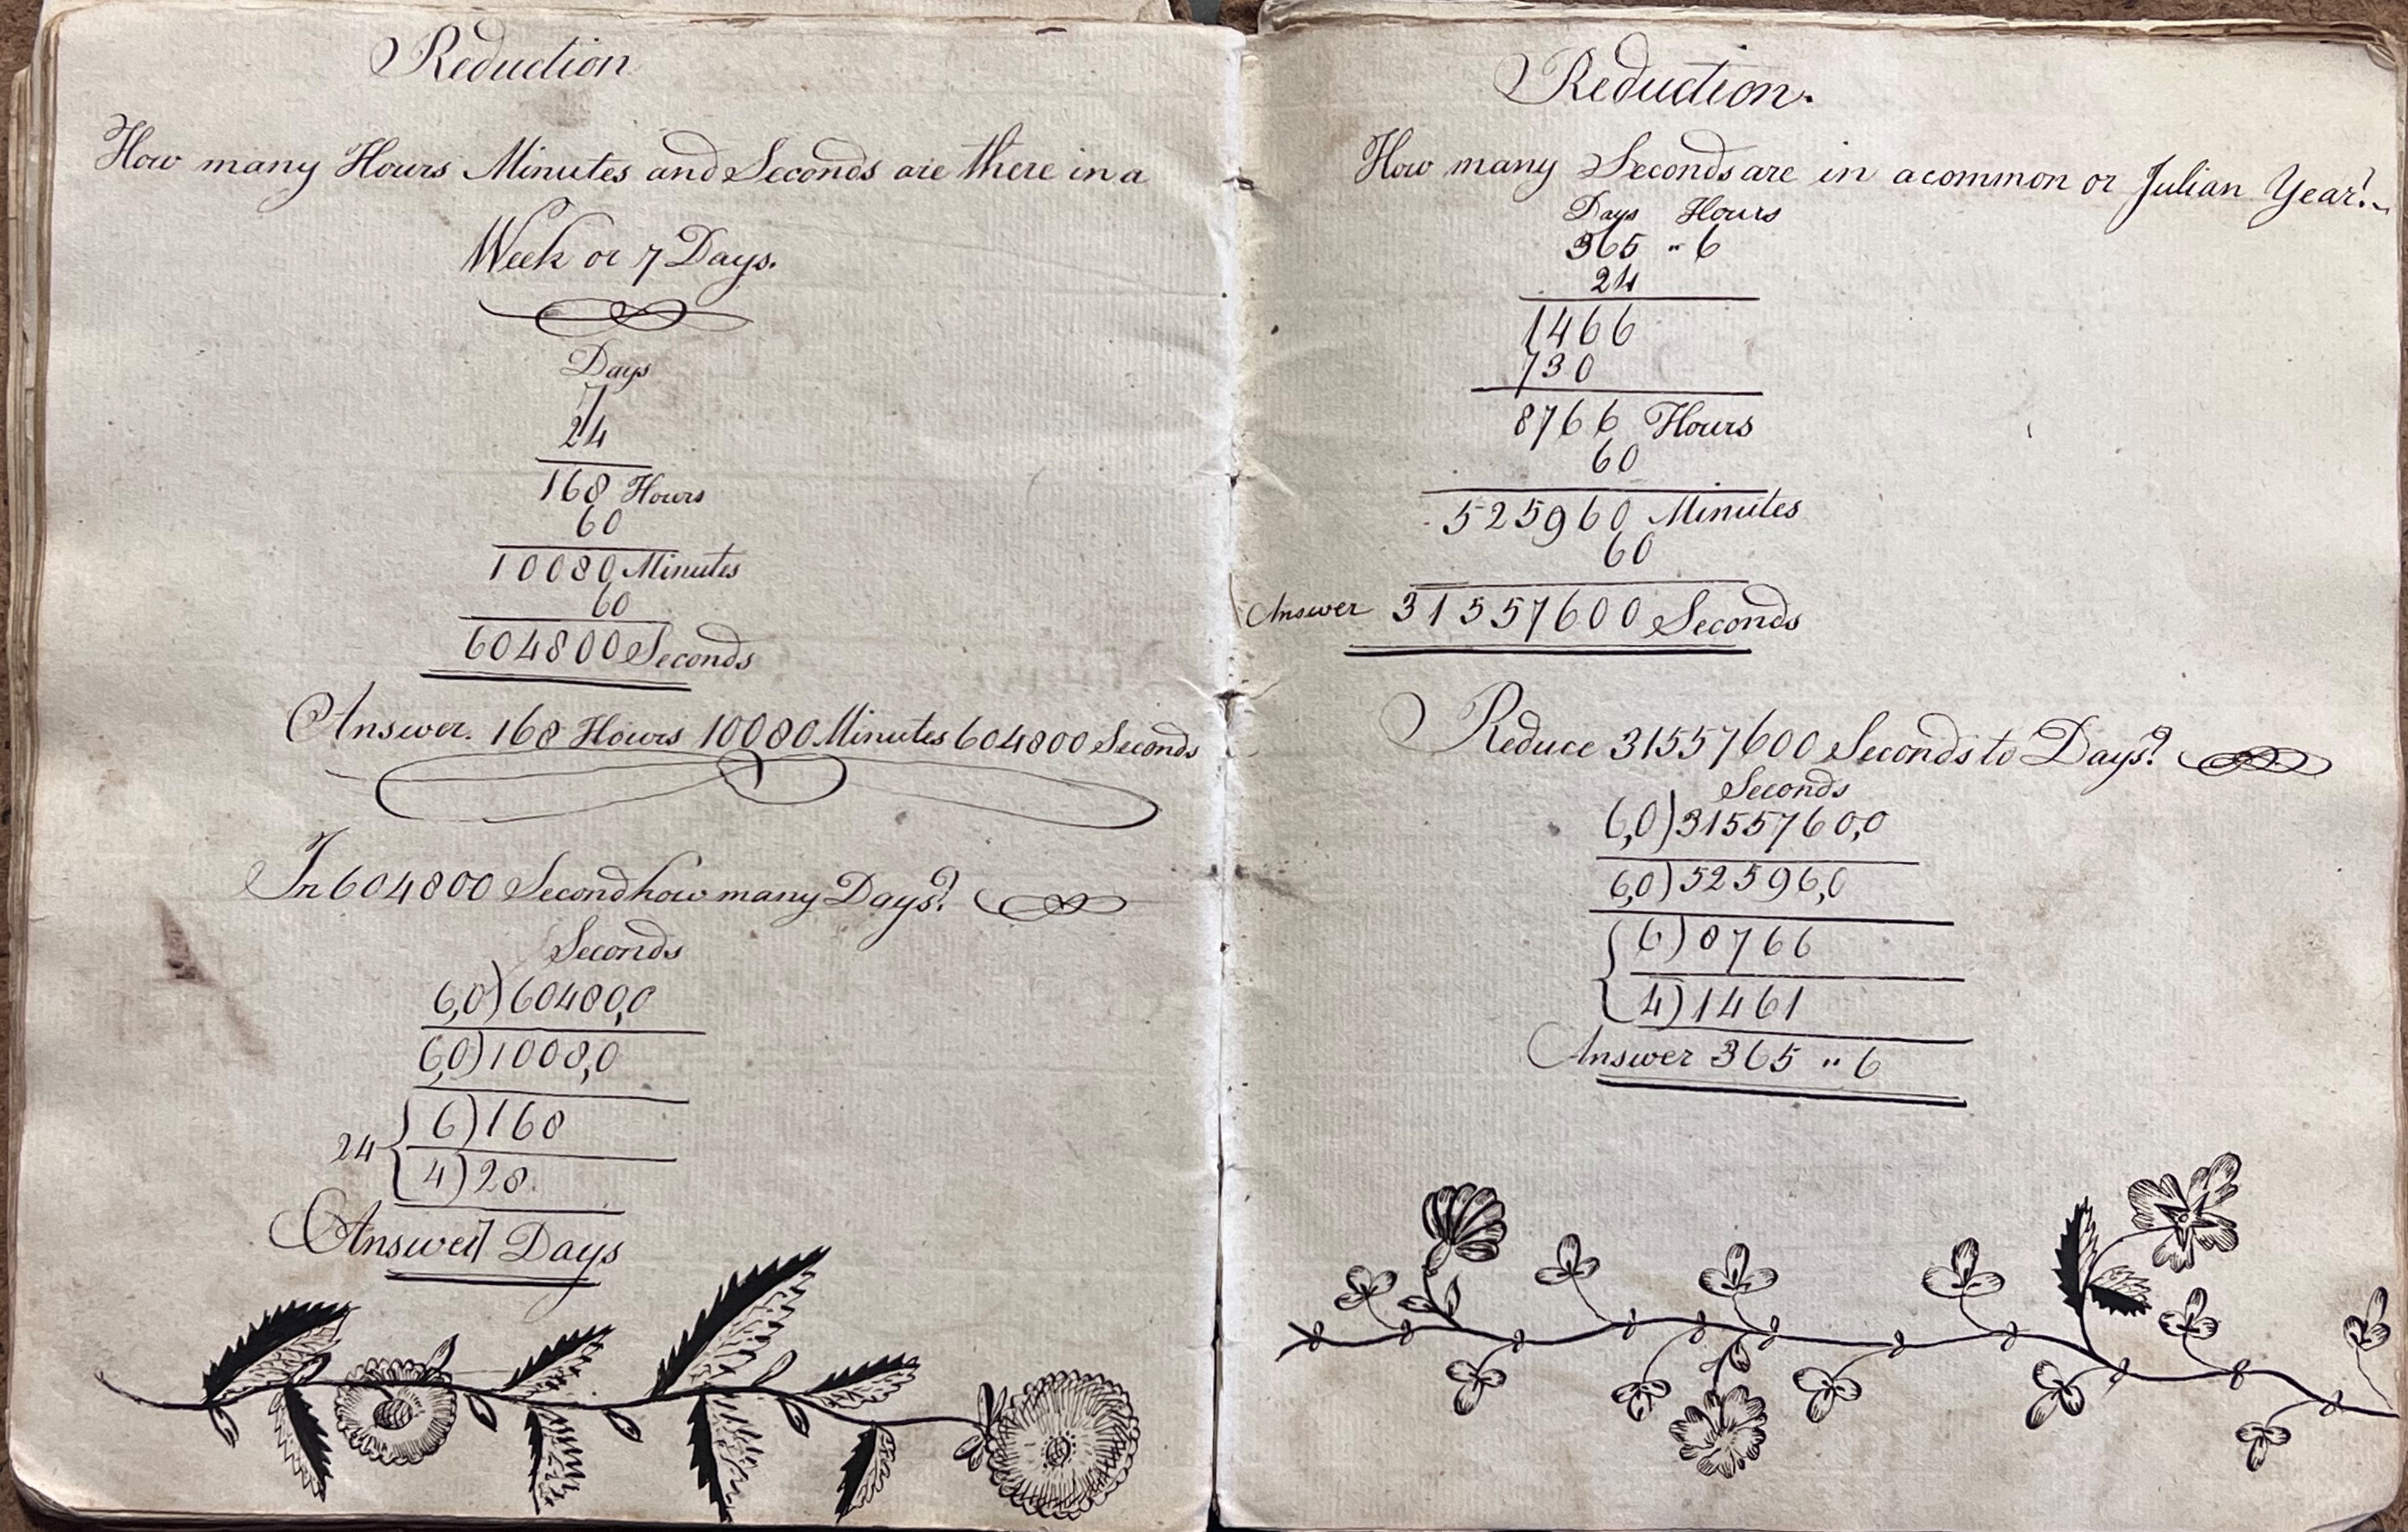 Reduction
How many Hours Minutes and Seconds are there in a
Week or 7 Days.
Days
7
24
168 Hours
60
10080 Minutes
60
604800 Seconds
Answer. 168 Hours 10080 Minutes 604800 Seconds
In 604800 Second how many Days?
Seconds
6,0)60480,0
6,0)1008,0
6)168
24
4)28
Answer 7 Days
Reduction.
How many Seconds are in a common or Julian Year?
Days Hours
365 " 6
24
1466
730
8766 Hours
60
525960 Minutes
60
Answer 31557600 Seconds
Reduce 31557600 Seconds to Days?
Seconds
6,0)3155760,0
6,0)52596,0
6)8766
4)1461
Answer 365 " 6